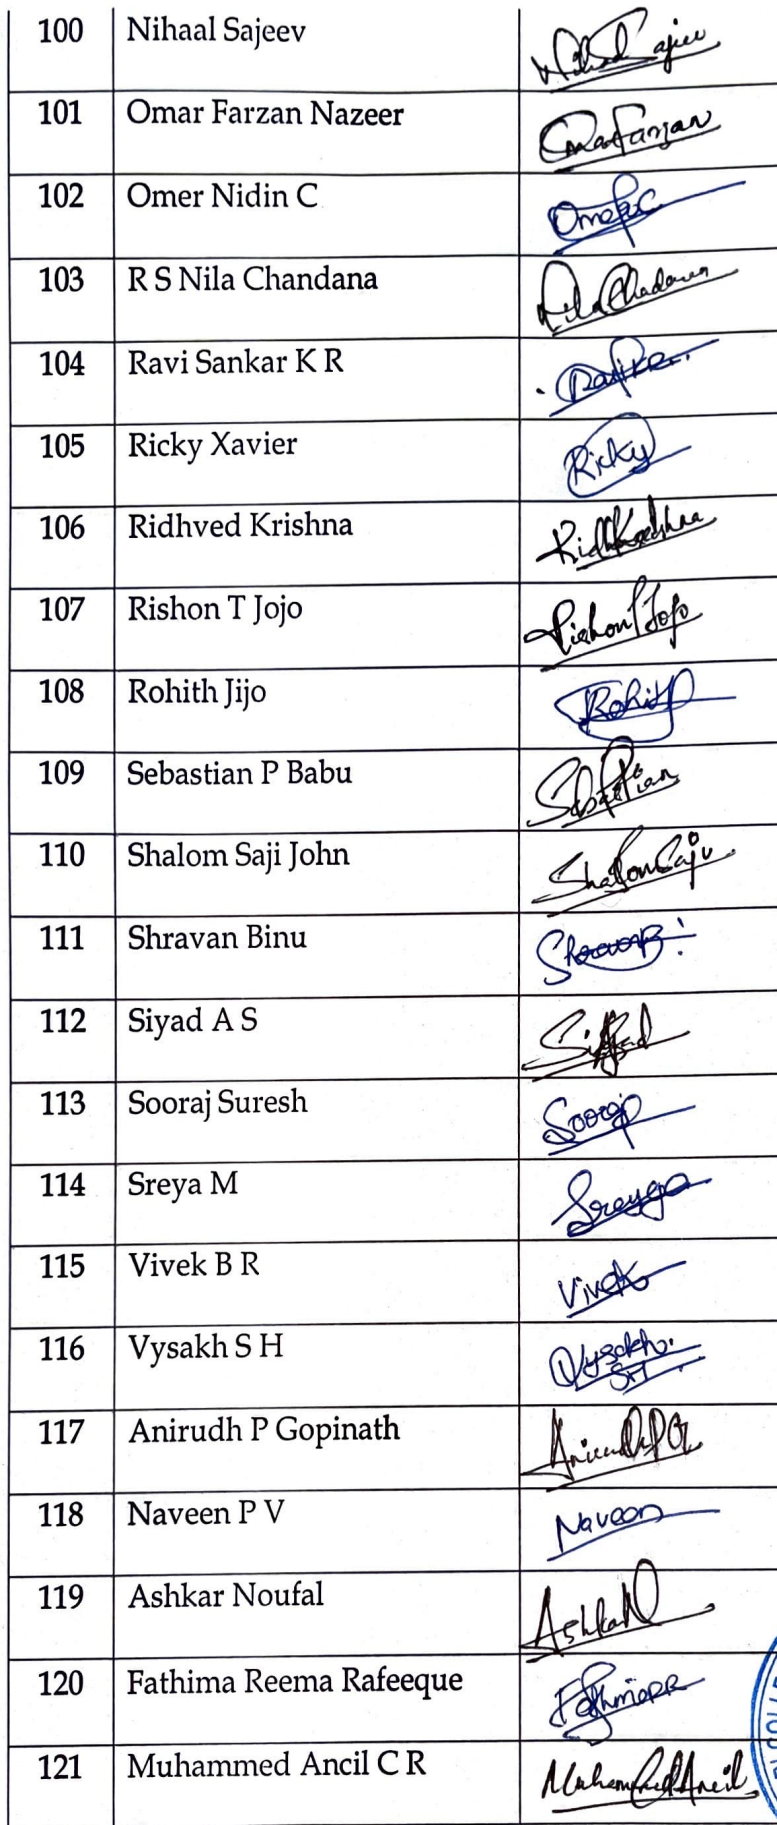 100 Nihaal Sajeev Nihaal Sajeev
101 Omar Farzan Nazeer Omar Farzan
102 Omer Nidin C
103 R S Nila Chandana Nila Chadana
104 Ravi Sankar K R
105 Ricky Xavier Ricky
106 Ridhved Krishna
107 Rishon T Jojo Rishon T Jojo
108 Rohith Jijo
109 Sebastian P Babu Sebastian
110 Shalom Saji John
111 Shravan Binu
112 Siyad A S Siyad
113 Sooraj Suresh Sooraj
114 Sreya M
115 Vivek B R Vivek
116 Vysakh S H Vysakh.
SH
117 Anirudh P Gopinath Anirudh P G
118 Naveen P V Naveen
119 Ashkar Noufal
120 Fathima Reema Rafeeque
121 Muhammed Ancil C R Muhammed Ancil